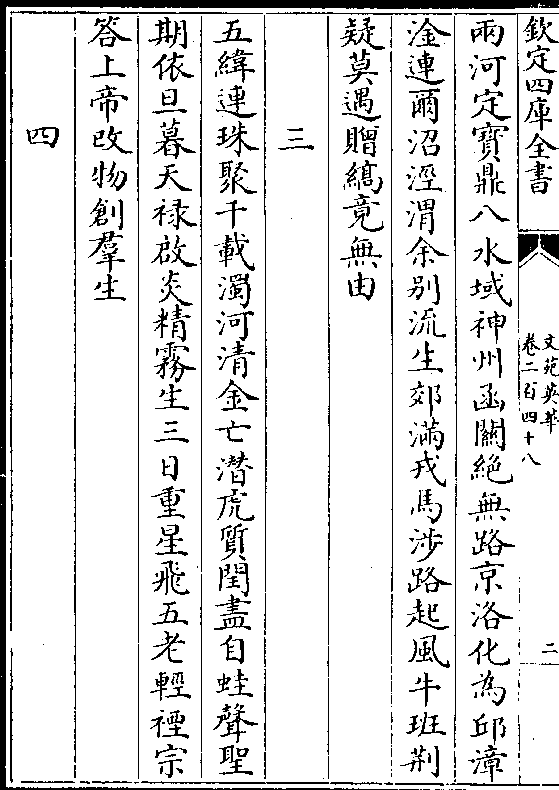 欽定四庫全書
文苑英華
卷二百四十八
二
兩河定寶鼎八水域神州函關絶無路京洛化為邱漳
淦連爾沼涇渭余别流生郊滿戎馬涉路起風牛班荆
疑莫遇贈縞竟無由
三
五緯連珠聚千載濁河清金亡潜虎質閏盡自蛙聲聖
期依旦暮天禄啟炎精霧生三日重星飛五老輕禋宗
答上帝改物創羣生
四